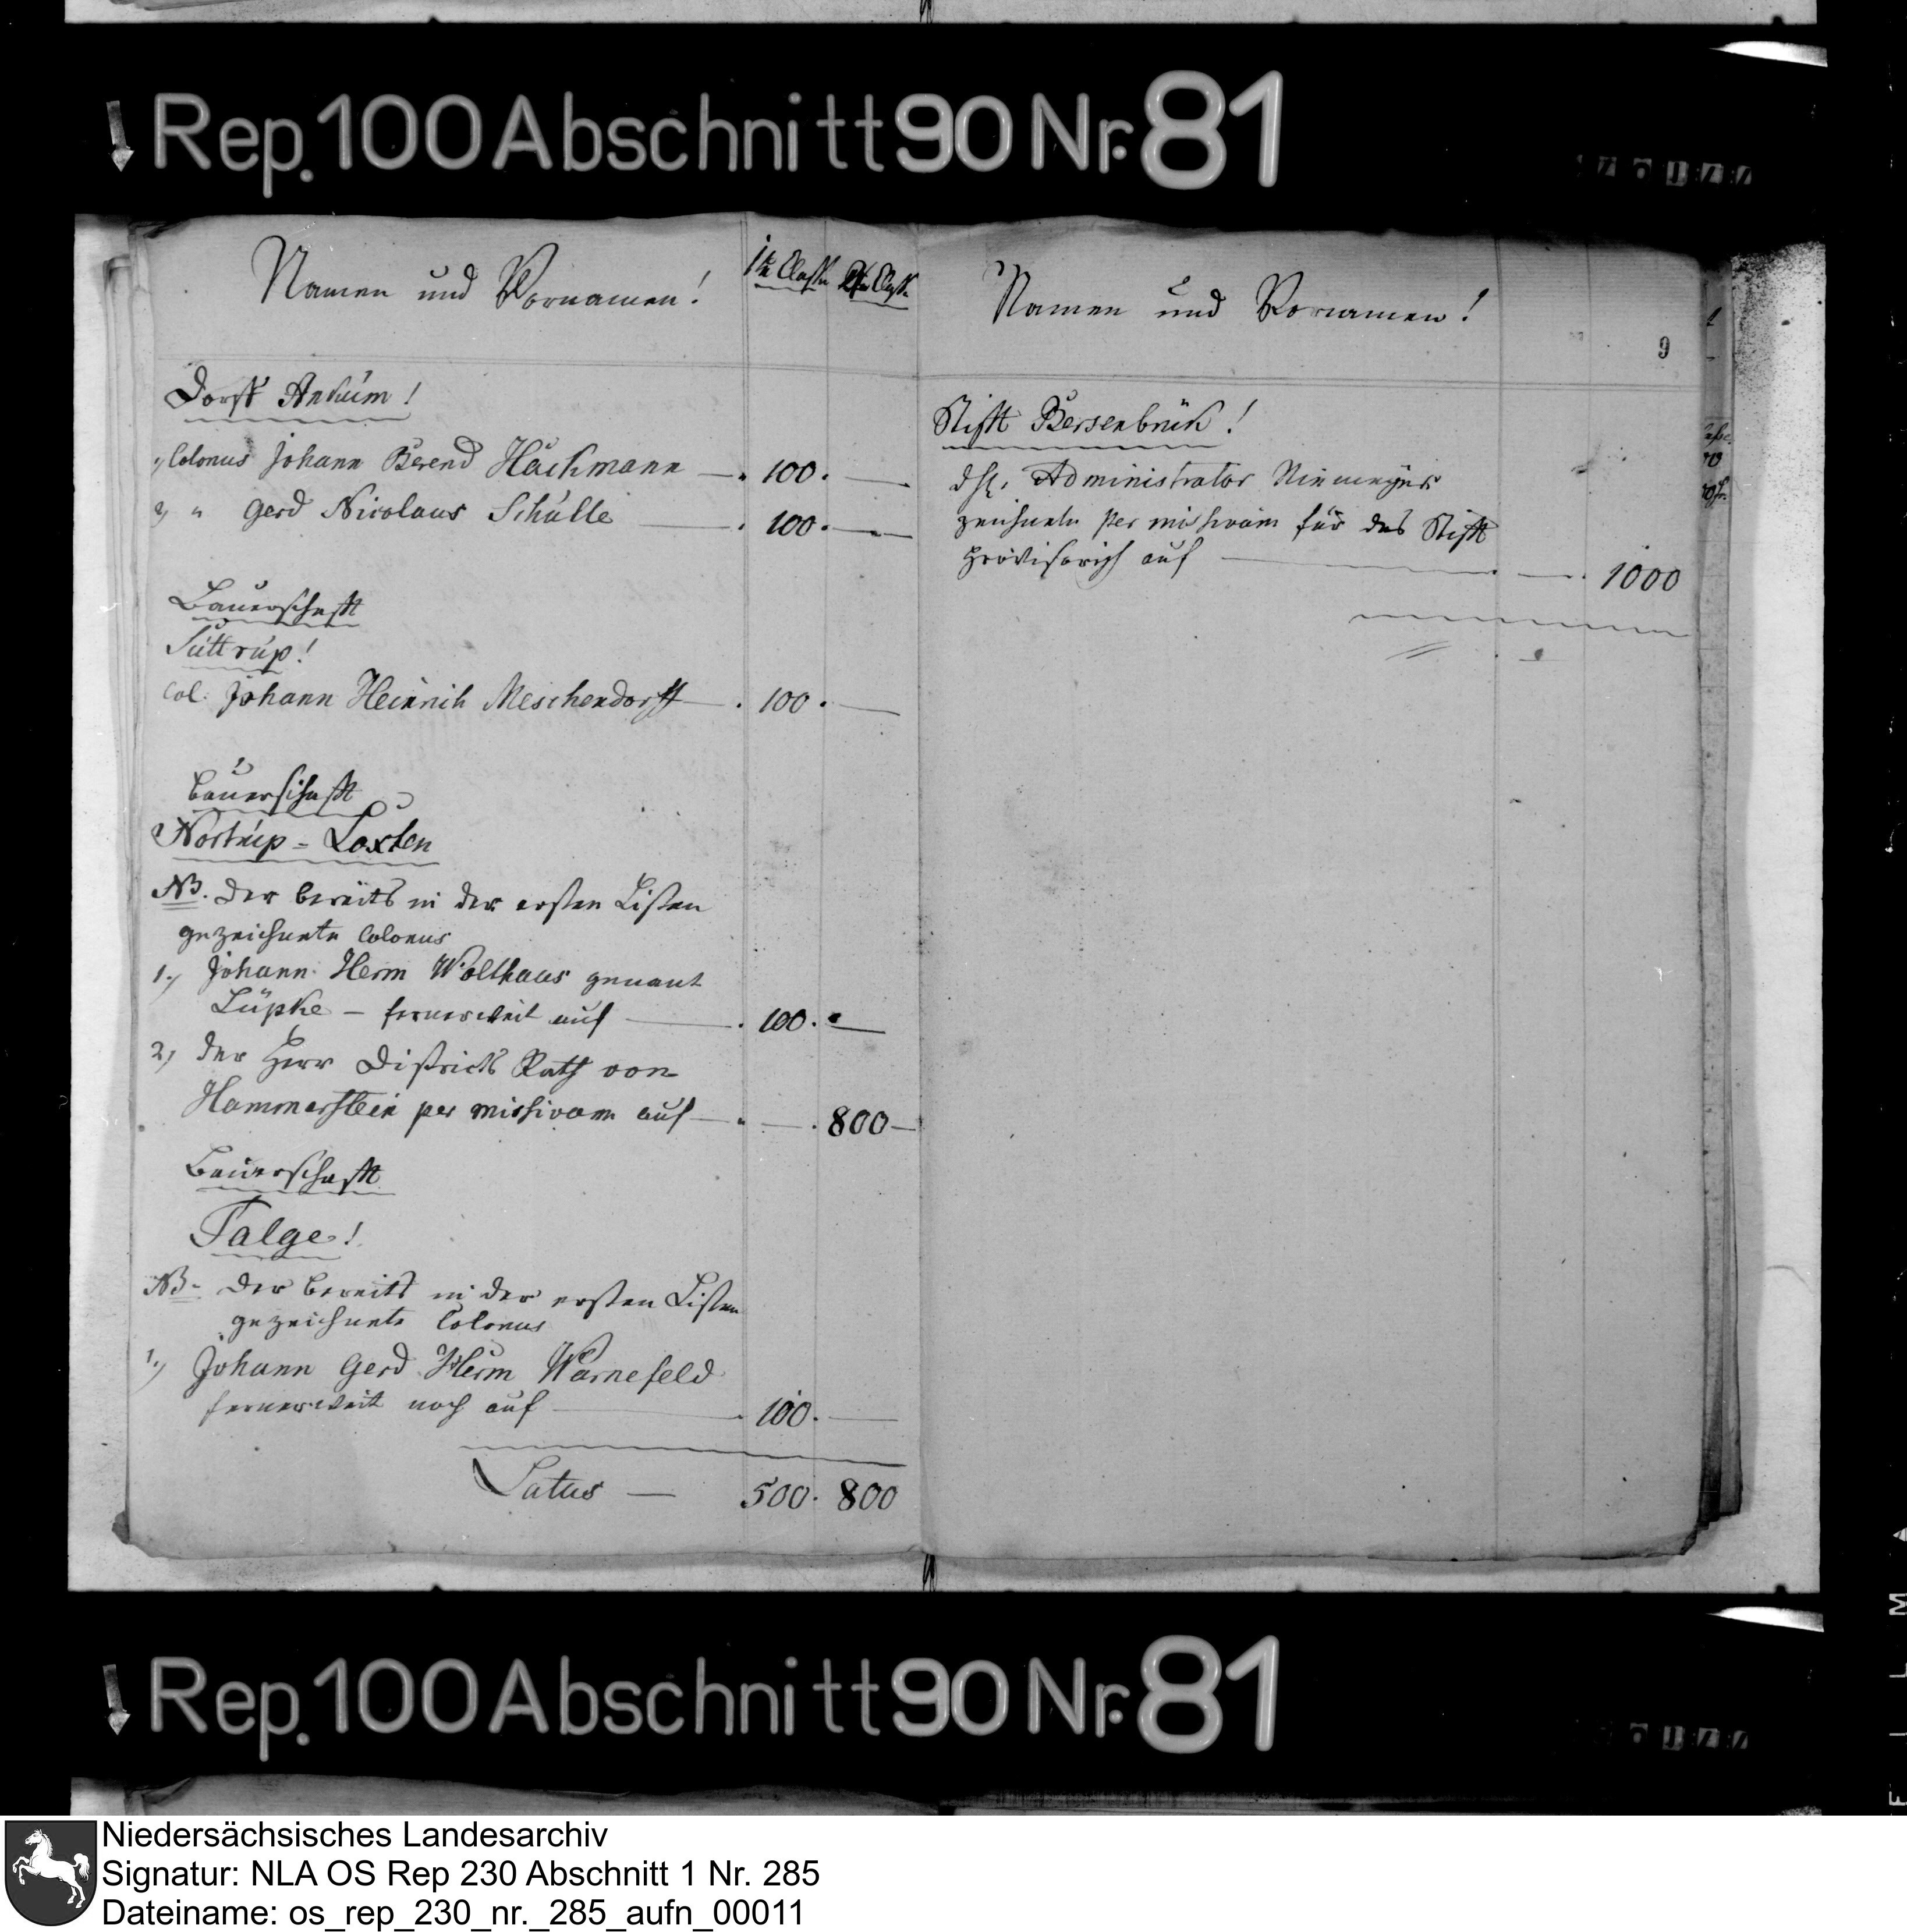 Rep. 100 Abschnitt 90 Nr. 81
Namen und Vornamen!
1te Classe 2te Classe
Dorff Ankum!
1, Colonus Johann Berend Hackmann — . 100 . —
2, " Gerd Nicolaus Schulle — . 100 . —
Bauerschafft
Suttrup!
Col. Johann Heinrich Meschendorff — . 100 . —
Bauerschafft
Nortrup - Loxten
NB. der bereits in der ersten Listen
gezeichnete Colonus
1.) Johann Herm Wolthaus genant
Lüpke — fernerweit auf — . 100 . —
2, der Herr Districts Rath von
Hammerstein per missivam auf — . — . 800 —
Bauerschafft
Talge!
NB - der bereits in der ersten Listen
gezeichnete Colonus
1.) Johann Gerd Herm Warnefeld
fernerweit noch auf — . 100 . —
Latus — 500 . 800
Namen und Vornamen!
9
Stifft Bersenbrück!
Administrator Niemeyer
zeichnete per missivam für das Stifft
provisorisch auf — . — . 1000
Rep. 100 Abschnitt 90 Nr. 81
Niedersächsisches Landesarchiv
Signatur: NLA OS Rep 230 Abschnitt 1 Nr. 285
Dateiname: os_rep_230_nr._285_aufn_00011